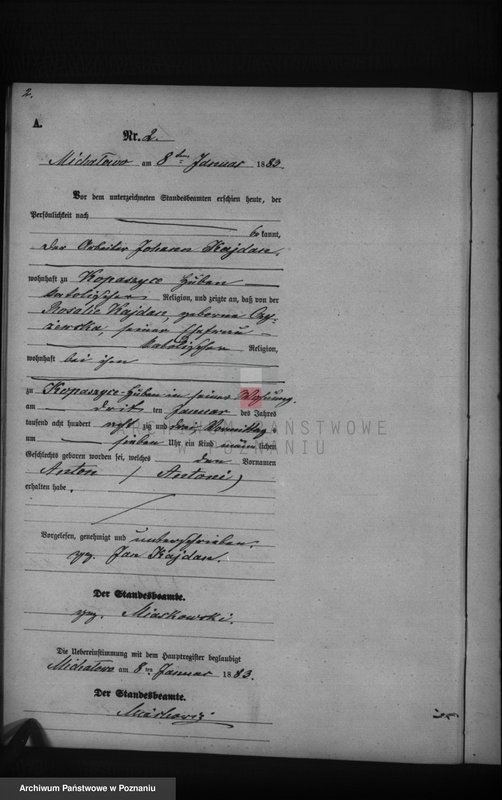 2.
A.
Nr. 2.
Michałowo am 8 ten Januar 1883.
Vor dem unterzeichneten Standesbeamten erschien heute, der
Persönlichkeit nach
be kannt,
der Arbeiter Johann Kajdan,
wohnhaft zu Kopaszyce Huben
katolischer Religion, und zeigte an, daß von der
Rosalie Kajdan, geborene
seiner Ehefrau
katolischer Religion,
wohnhaft bei ihm
zu Kopaszyce-Huben in seiner Wohnung
am dritten Januar des Jahres
tausend acht hundert acht zig und drei Vormittag
um sieben Uhr ein Kind männlichen
Geschlechts geboren worden sei, welches den Vornamen
Anton (Antoni)
erhalten habe.
Vorgelesen, genehmigt und unterschrieben.
gez. Jan Kajdan.
Der Standesbeamte.
gez. Miaskowski.
Die Uebereinstimmung mit dem Hauptregister beglaubigt
Michałowo am 8 ten Januar 1883.
Der Standesbeamte.
Miaskowski
ARCHIWUM PAŃSTWOWE
W POZNANIU
Archiwum Państwowe w Poznaniu